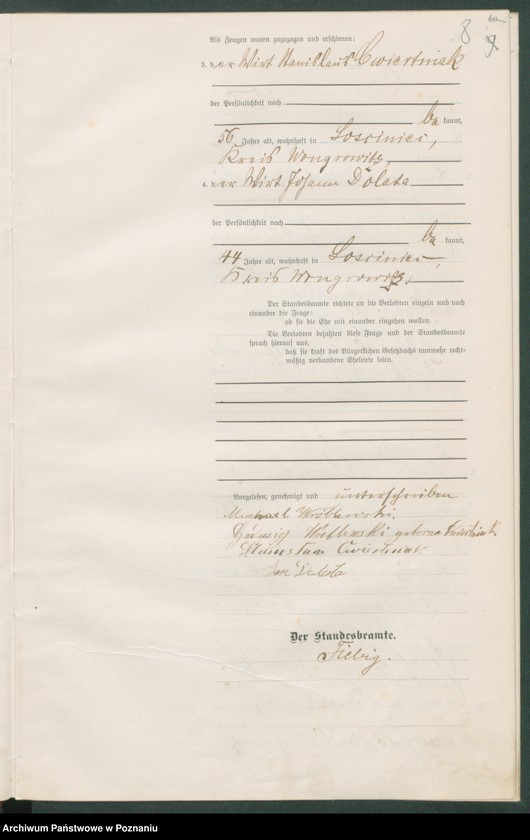 8
Als Zeugen waren zugezogen und erschienen:
3. der Wirt Stanislaus Cwiertniak
der Persönlichkeit nach
be kannt,
56 Jahre alt, wohnhaft in Losciniec,
Kreis Wongrowitz,
4. der Wirt Johann Dolata
der Persönlichkeit nach
be kannt,
44 Jahre alt, wohnhaft in Losciniec,
Kreis Wongrowitz.
Der Standesbeamte richtete an die Verlobten einzeln und nach
einander die Frage:
ob sie die Ehe mit einander eingehen wollen.
Die Verlobten bejahten diese Frage und der Standesbeamte
sprach hierauf aus,
daß sie kraft des Bürgerlichen Gesetzbuchs nunmehr recht-
mäßig verbundene Eheleute seien.
Vorgelesen, genehmigt und unterschrieben
Michael
geborne Cwiertniak
Cwiertniak
Jan Dolata
Der Standesbeamte.
Fiebig.
Archiwum Państwowe w Poznaniu